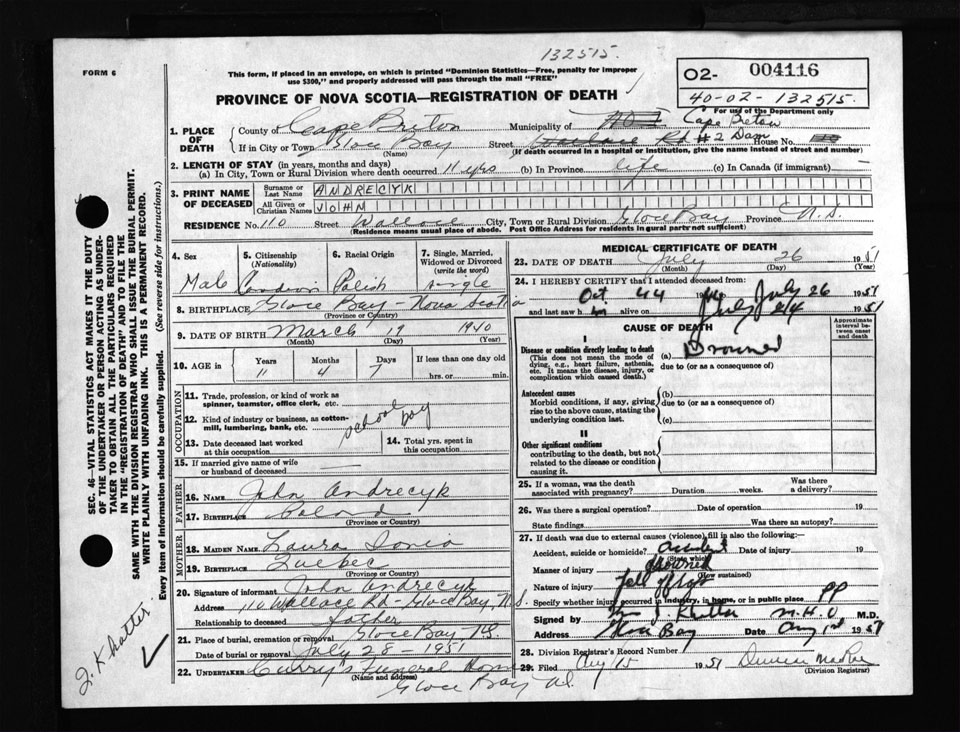 132515.
FORM 6
This form, if placed in an envelope, on which is printed "Dominion Statistics—Free, penalty for improper
use $300," and properly addressed will pass through the mail "FREE"
02- 004116
40-02-132515.
For use of the Department only
PROVINCE OF NOVA SCOTIA—REGISTRATION OF DEATH
1. PLACE OF DEATH
County of Cape Breton Municipality of Cape Breton
If in City or Town Glace Bay (Name) Street #2 Dam House No.
(If death occurred in a hospital or institution, give the name instead of street and number)
2. LENGTH OF STAY (in years, months and days)
(a) In City, Town or Rural Division where death occurred 11 yrs (b) In Province life (c) In Canada (if immigrant) —
3. PRINT NAME OF DECEASED
Surname or Last Name ANDRECYK
All Given or Christian Names JOHN
RESIDENCE No. 110 Street Wallace City, Town or Rural Division Glace Bay Province N.S.
(Residence means usual place of abode. Post Office Address for residents in rural parts not sufficient)
4. Sex Male
5. Citizenship (Nationality) Canadian
6. Racial Origin Polish
7. Single, Married, Widowed or Divorced (write the word) single
8. BIRTHPLACE Glace Bay - Nova Scotia
(Province or Country)
9. DATE OF BIRTH March 19 1940
(Month) (Day) (Year)
10. AGE in Years 11 Months 4 Days 7 If less than one day old
hrs. or min.
OCCUPATION
11. Trade, profession, or kind of work as
spinner, teamster, office clerk, etc.
school boy
12. Kind of industry or business, as cotton-
mill, lumbering, bank, etc.
13. Date deceased last worked
at this occupation
14. Total yrs. spent in
this occupation
15. If married give name of wife
or husband of deceased —
FATHER
16. NAME John Andrecyk
17. BIRTHPLACE Poland
(Province or Country)
MOTHER
18. MAIDEN NAME Laura
19. BIRTHPLACE Quebec
(Province or Country)
20. Signature of informant John Andrecyk
Address 110 Wallace Rd - Glace Bay N.S.
Relationship to deceased father
21. Place of burial, cremation or removal Glace Bay - N.S.
Date of burial or removal July 28 - 1951
22. UNDERTAKER Curry's Funeral Home
(Name and address)
Glace Bay N.S.
MEDICAL CERTIFICATE OF DEATH
23. DATE OF DEATH July 26 1951
(Month) (Day) (Year)
24. I HEREBY CERTIFY that I attended deceased from
Oct. 44 July 26 1951
and last saw h alive on July 24 1951
CAUSE OF DEATH
Approximate interval between onset and death
I
Disease or condition directly leading to death
(This does not mean the mode of
dying, e.g., heart failure, asthenia,
etc. It means the disease, injury, or
complication which caused death.)
(a) Drowned
due to (or as a consequence of)
Antecedent causes
Morbid conditions, if any, giving
rise to the above cause, stating the
underlying condition last.
(b)
due to (or as a consequence of)
(c)
II
Other significant conditions
contributing to the death, but not
related to the disease or condition
causing it.
25. If a woman, was the death
associated with pregnancy? Duration weeks. Was there
a delivery?
26. Was there a surgical operation? Date of operation 19
State findings Was there an autopsy?
27. If death was due to external causes (violence) fill in also the following:
Accident, suicide or homicide? Accident Date of injury 19
(State which)
Manner of injury drowned
(How sustained)
Nature of injury fell off
Specify whether injury occurred in industry, in home, or in public place PP
Signed by M.H.O. M.D.
Address Glace Bay Date Aug 1st 1951
28. Division Registrar's Record Number
29. Filed Aug 15 1951
(Division Registrar)
SEC. 46—VITAL STATISTICS ACT MAKES IT THE DUTY
OF THE UNDERTAKER OR PERSON ACTING AS UNDER-
TAKER TO OBTAIN ALL THE PARTICULARS REQUIRED
IN THE "REGISTRATION OF DEATH" AND TO FILE THE
SAME WITH THE DIVISION REGISTRAR WHO SHALL ISSUE THE BURIAL PERMIT.
WRITE PLAINLY WITH UNFADING INK. THIS IS A PERMANENT RECORD.
Every item of information should be carefully supplied. (See reverse side for instructions.)
J. Khatter